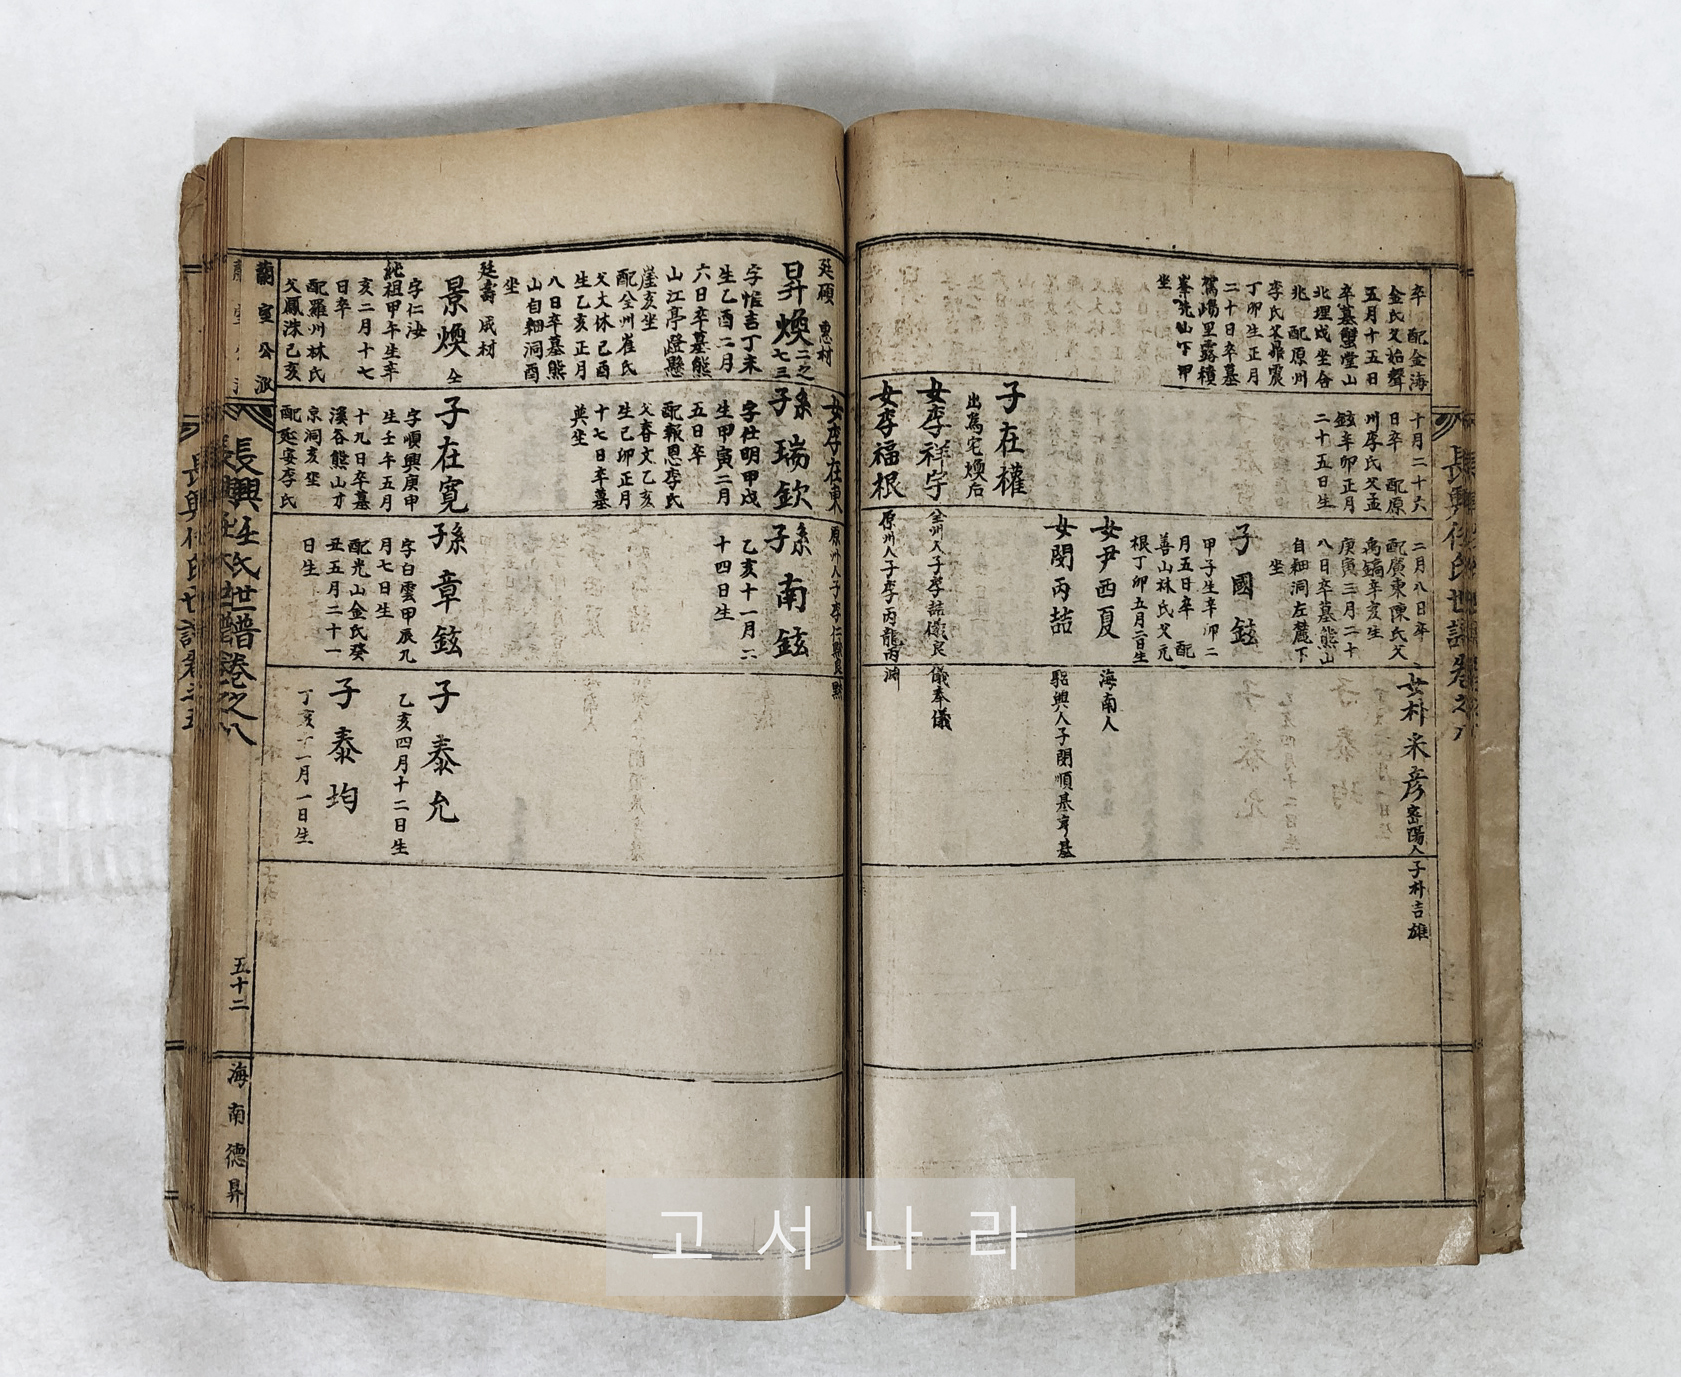 卒 配金海
金氏父始聲
五月十五日
卒墓蟹堂山
北埋戌坐合
兆 配原州
李氏父鼎震
丁卯生正月
二十日卒墓
鴛鴦里露積
峯虎山下甲
坐
十月二十六
日卒 配原
州李氏父孟
鉉辛卯正月
二十五日生
子在權
出為宅煥后
女李祥宇
女李福根
二月八日卒
配廣東陳氏父
禹鎬辛亥生
庚寅三月二十
八日卒墓熊山
自細洞左麓下
坐
子國鉉
甲子生辛卯二
月五日卒 配
善山林氏父元
根丁卯五月二日生
女尹西夏
女閔丙喆
全州人子李誌儀良
原州人子李丙龍丙淵
女朴來彦密陽人
海南人
驪興人子閔順基亨基
儀奉儀
子朴吉雄
廷碩 惠材
昇煥二之七三
字惟吉丁未
生乙酉二月
六日卒墓熊
山江亭嶝懸
崖亥坐
配全州崔氏
父大休己酉
生乙亥正月
八日卒墓熊
山自細洞酉
坐
廷壽 成材
景煥仝
字仁汝
純祖甲午生辛
亥二月十七
日卒
配羅州林氏
父鳳洙己亥
女李在東
孫瑞欽
字仕明甲戌
生甲寅二月
五日卒
配報恩李氏
父春文乙亥
生己卯正月
十七日卒墓
英坐
子在寬
字順興庚申
生壬午五月
十九日卒墓
溪谷熊山才
京洞亥坐
配延安李氏
原州人子李仁默良
孫南鉉
乙亥十一月二
十四日生
孫章鉉
字白雲甲辰九
月七日生
配光山金氏癸
丑五月二十一
日生
默
子泰允
乙亥四月十二日生
子泰均
丁亥十一月一日生
蘭室公派
長興任氏世譜卷之八
五十二
海南德昇
고서나라